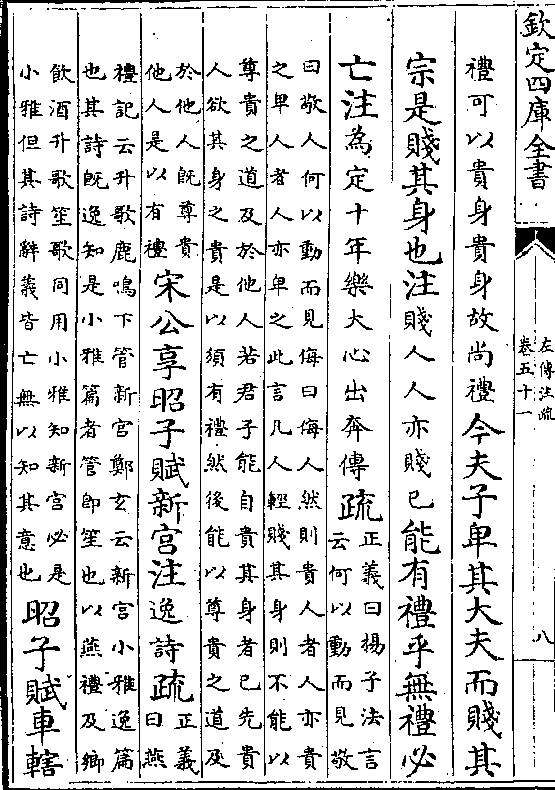 欽定四庫全書
左傳注疏
卷五十一
八
禮可以貴身貴身故尚禮今夫子卑其大夫而賤其
宗是賤其身也注賤人人亦賤己能有禮乎無禮必
亡注為定十年樂大心出奔傳疏
正義曰揚子法言
云何以動而見敬
曰敬人何以動而見侮曰侮人然則貴人者人亦貴
之卑人者人亦卑之此言凡人輕賤其身則不能以
尊貴之道及於他人若君子能自貴其身者已先貴
人欲其身之貴是以須有禮然後能以尊貴之道及
於他人既尊貴
他人是以有禮
宋公享昭子賦新宮注逸詩疏
正義
曰燕
禮記云升歌鹿鳴下管新宮鄭玄云新宮小雅逸篇
也其詩既逸知是小雅篇者管即笙也以燕禮及鄉
飲酒升歌笙歌同用小雅知新宮必是
小雅但其詩辭義皆亡無以知其意也
昭子賦車轄